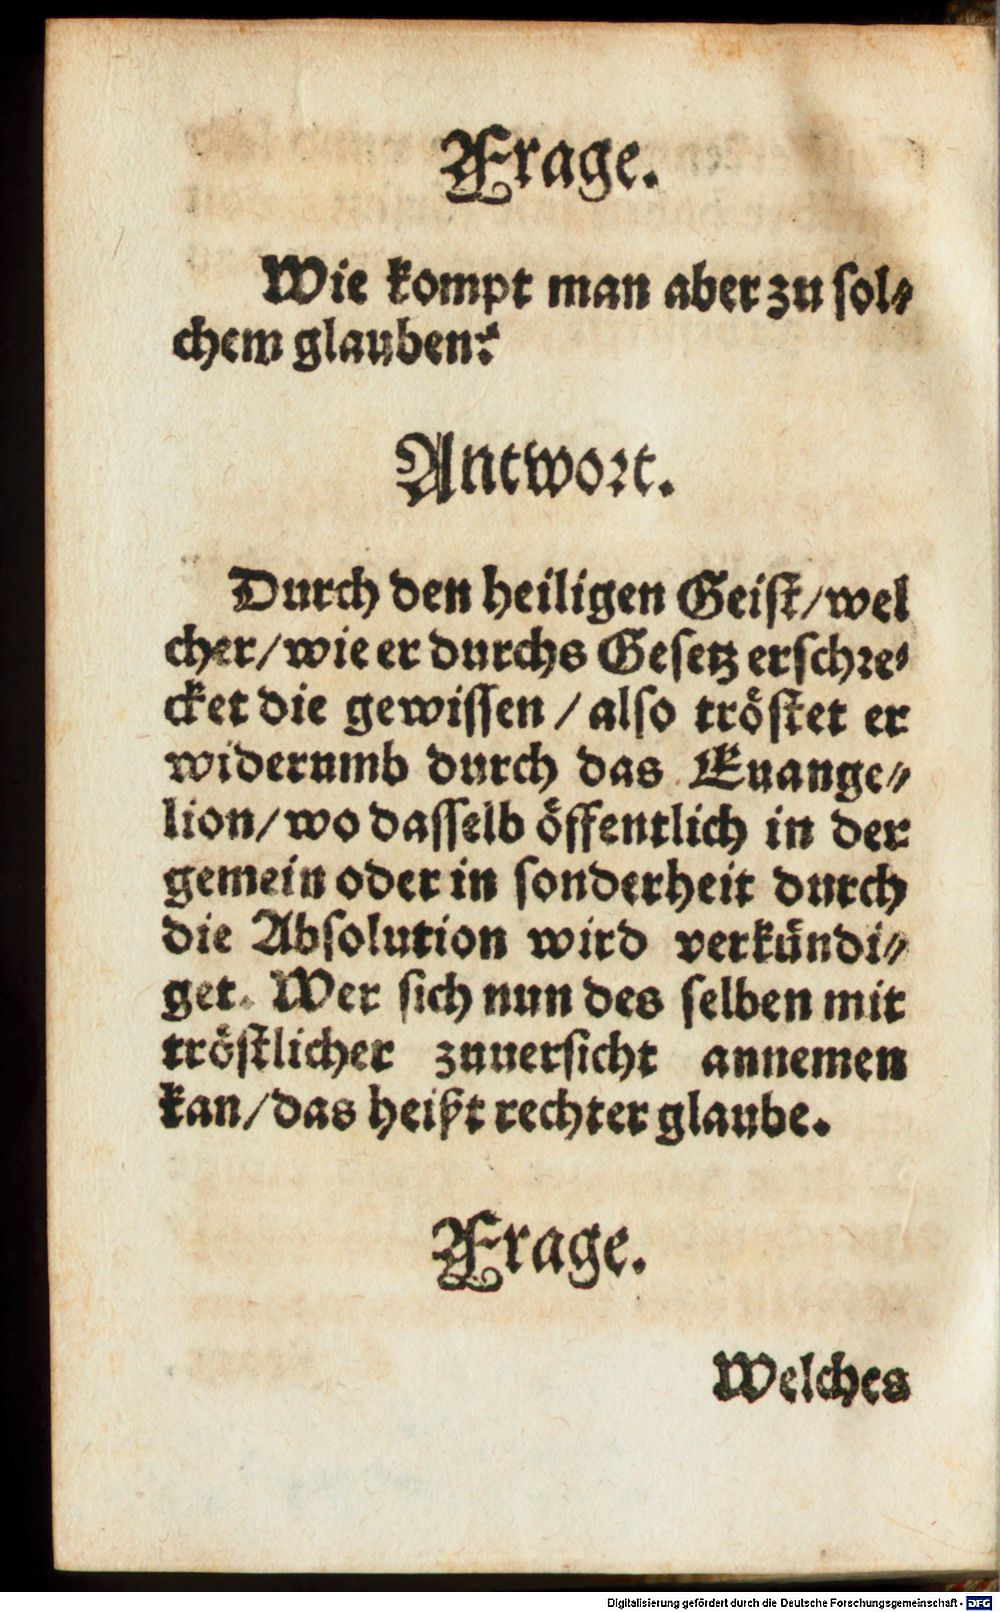 Frage.
Wie kompt man aber zu sol⸗
chem glauben?
Antwort.
Durch den heiligen Geist/wel
cher/wie er durchs Gesetz erschre⸗
cket die gewissen/also tröstet er
widerumb durch das Euange⸗
lion/wo dasselb öffentlich in der
gemein oder in sonderheit durch
die Absolution wird verkündi⸗
get. Wer sich nun des selben mit
tröstlicher zuuersicht annemen
kan/das heißt rechter glaube.
Frage.
Welches
Digitalisierung gefördert durch die Deutsche Forschungsgemeinschaft - DFG